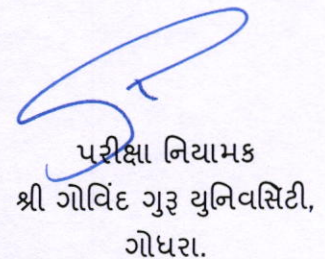 પરીક્ષા નિયામક
શ્રી ગોવિંદ ગુરૂ યુનિવર્સિટી,
ગોધરા.